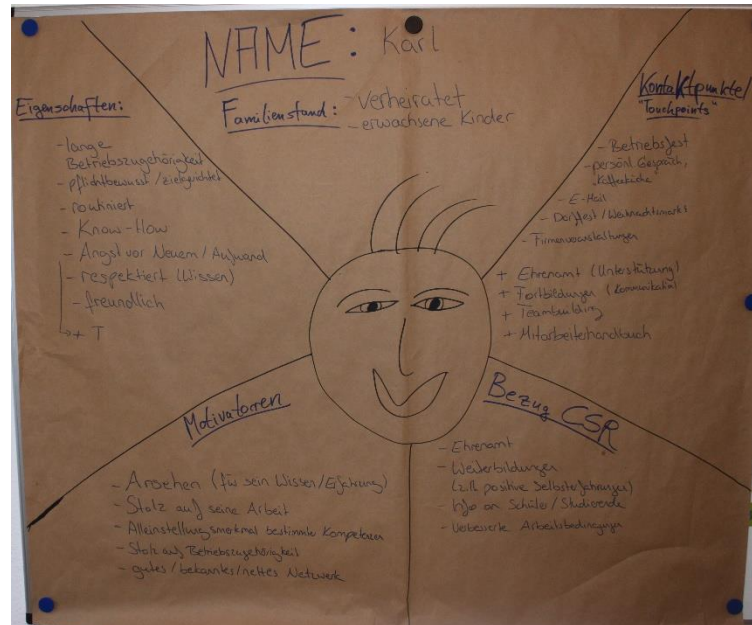 NAME: Karl
Familienstand: - verheiratet
- erwachsene Kinder
Eigenschaften:
- lange
Betriebszugehörigkeit
- pflichtbewusst / zielgerichtet
- routiniert
- Know-How
- Angst vor Neuem / Aufwand
- respektiert (Wissen)
- freundlich
+ T
Kontaktpunkte/
"Touchpoints"
- Betriebsfest
- persönl. Gespräch,
Kaffeeküche
- E-Mail
- Dorffest / Weihnachtsmarkt
- Firmenveranstaltungen
+ Ehrenamt (Unterstützung)
+ Fortbildungen (Kommunikation)
+ Teambuilding
+ Mitarbeiterhandbuch
Motivatoren
- Ansehen (für sein Wissen/Erfahrung)
- Stolz auf seine Arbeit
- Alleinstellungsmerkmal bestimmter Kompetenzen
- Stolz auf Betriebszugehörigkeit
- gutes/bekanntes/nettes Netzwerk
Bezug CSR
- Ehrenamt
- Weiterbildungen
(z.B. positive Selbsterfahrungen)
- Info an Schüler/Studierende
- verbesserte Arbeitsbedingungen